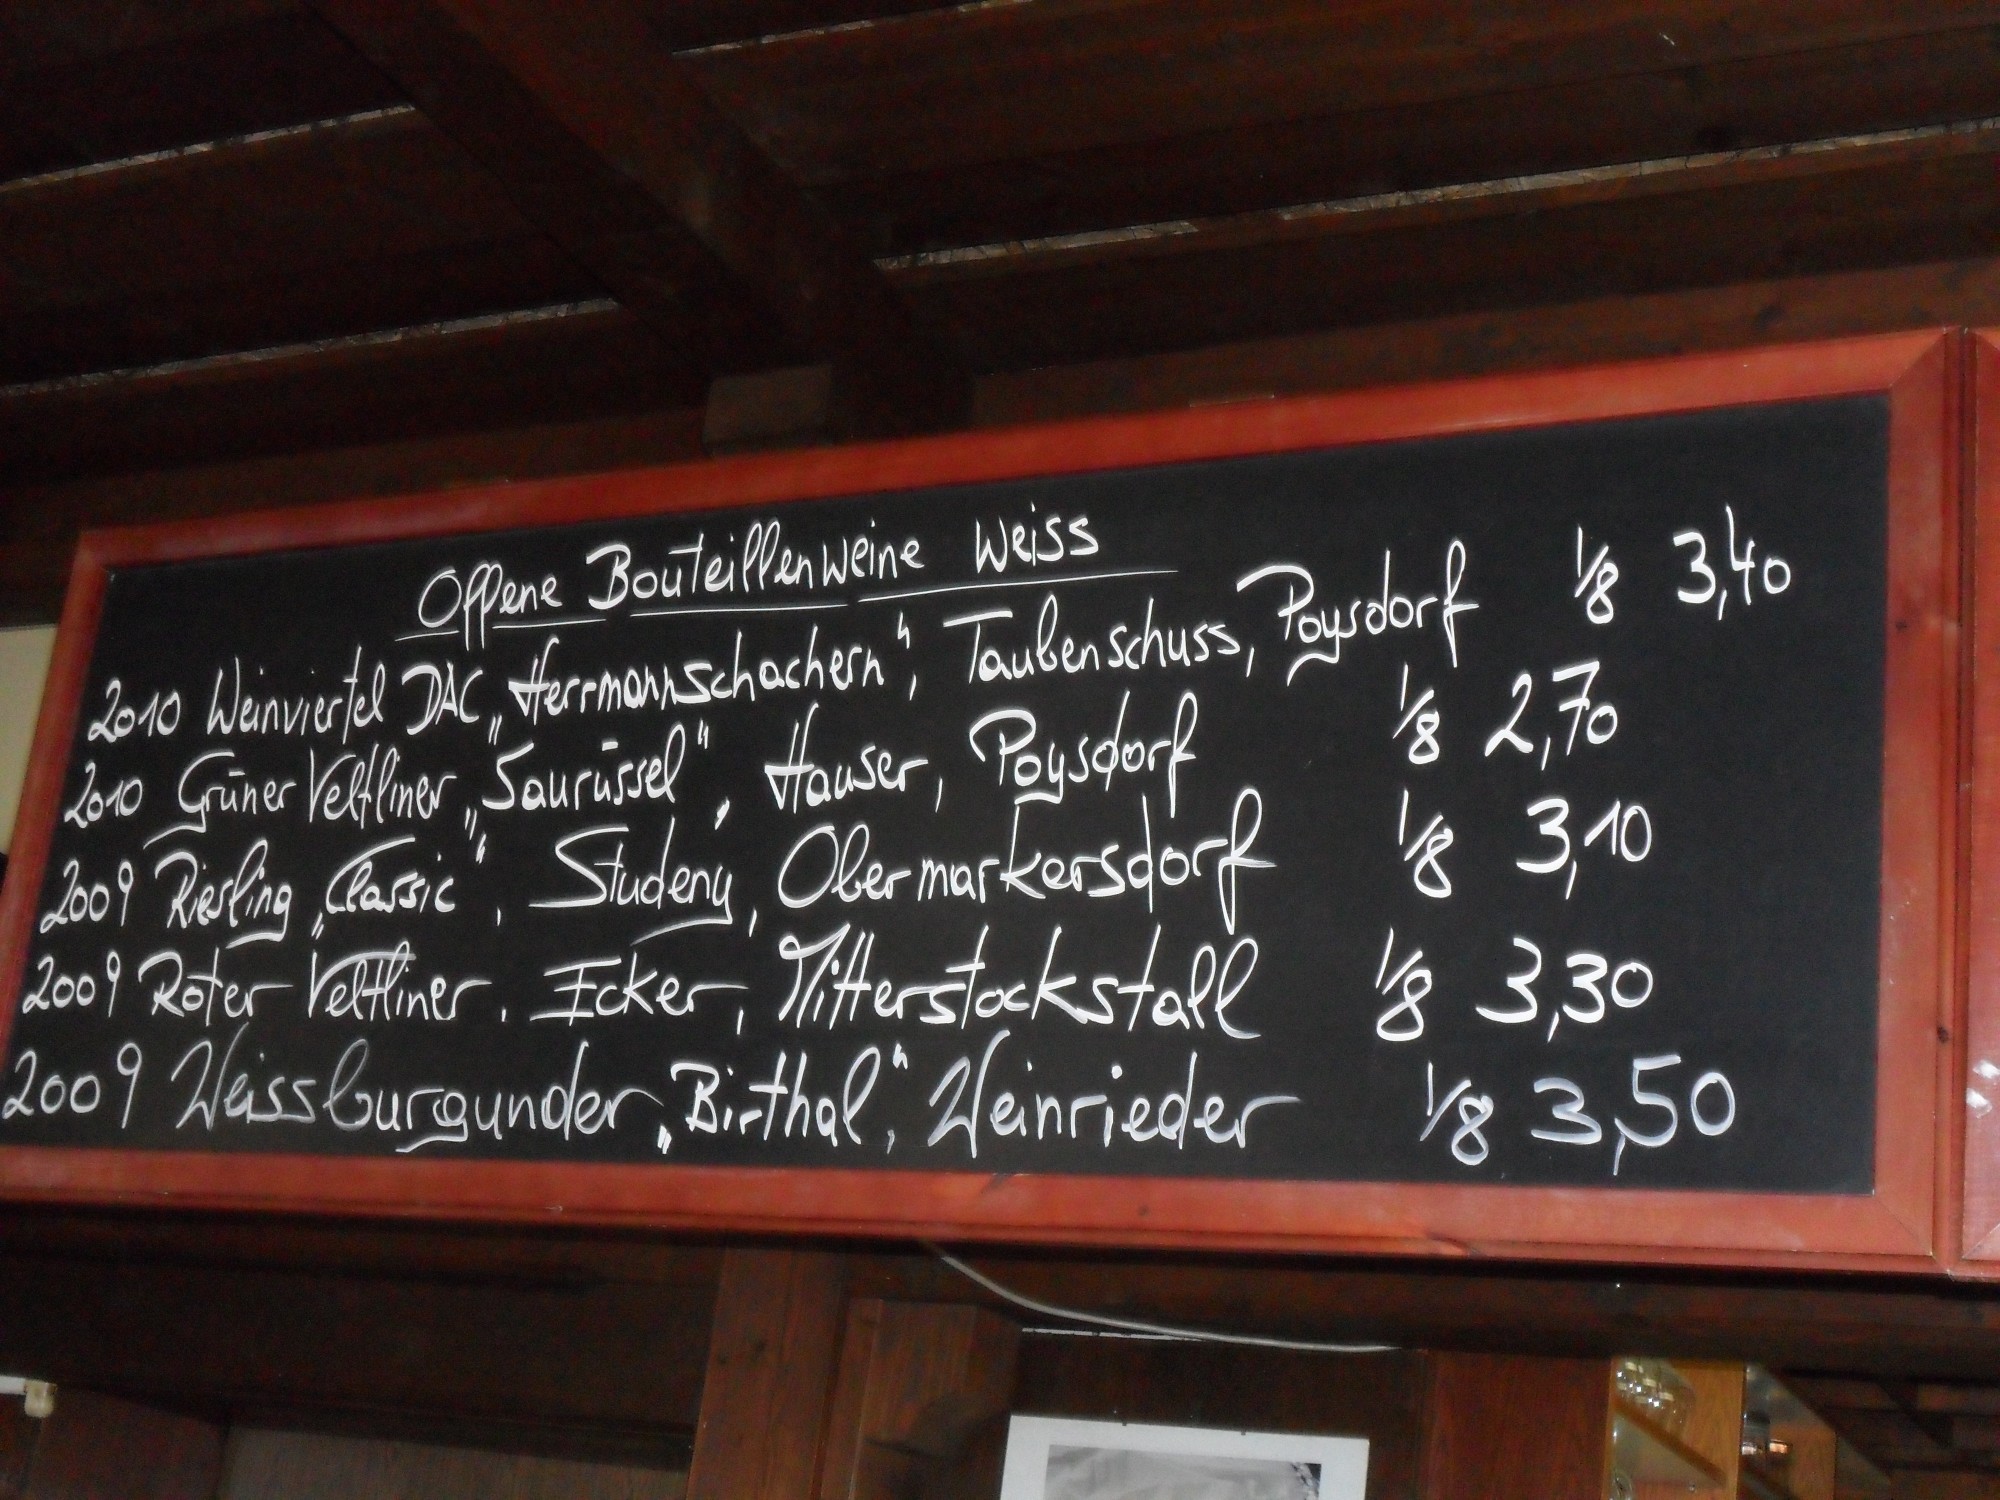 Offene Bouteillenweine Weiss
2010 Weinviertel DAC „Herrmannschachern“, Taubenschuss, Poysdorf 1/8 3,40
2010 Grüner Veltliner „Saurüssel“, Hauser, Poysdorf 1/8 2,70
2009 Riesling „Classic“, Studeny, Obermarkersdorf 1/8 3,10
2009 Roter Veltliner, Ecker, Mitterstockstall 1/8 3,30
2009 Weissburgunder „Birthal“, Weinrieder 1/8 3,50